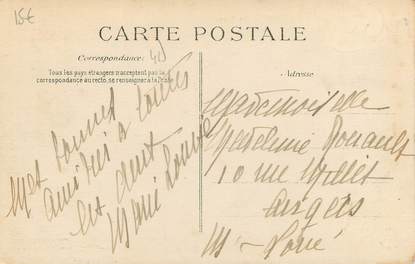 15€
CARTE POSTALE
Correspondance
Tous les pays étrangers n'acceptent pas la
correspondance au recto, se renseigner à la Poste.
Adresse
Mes bonnes
amitiés à toutes
Marie Louise
Mademoiselle
Madeleine
10 rue
Angers
M & Loire